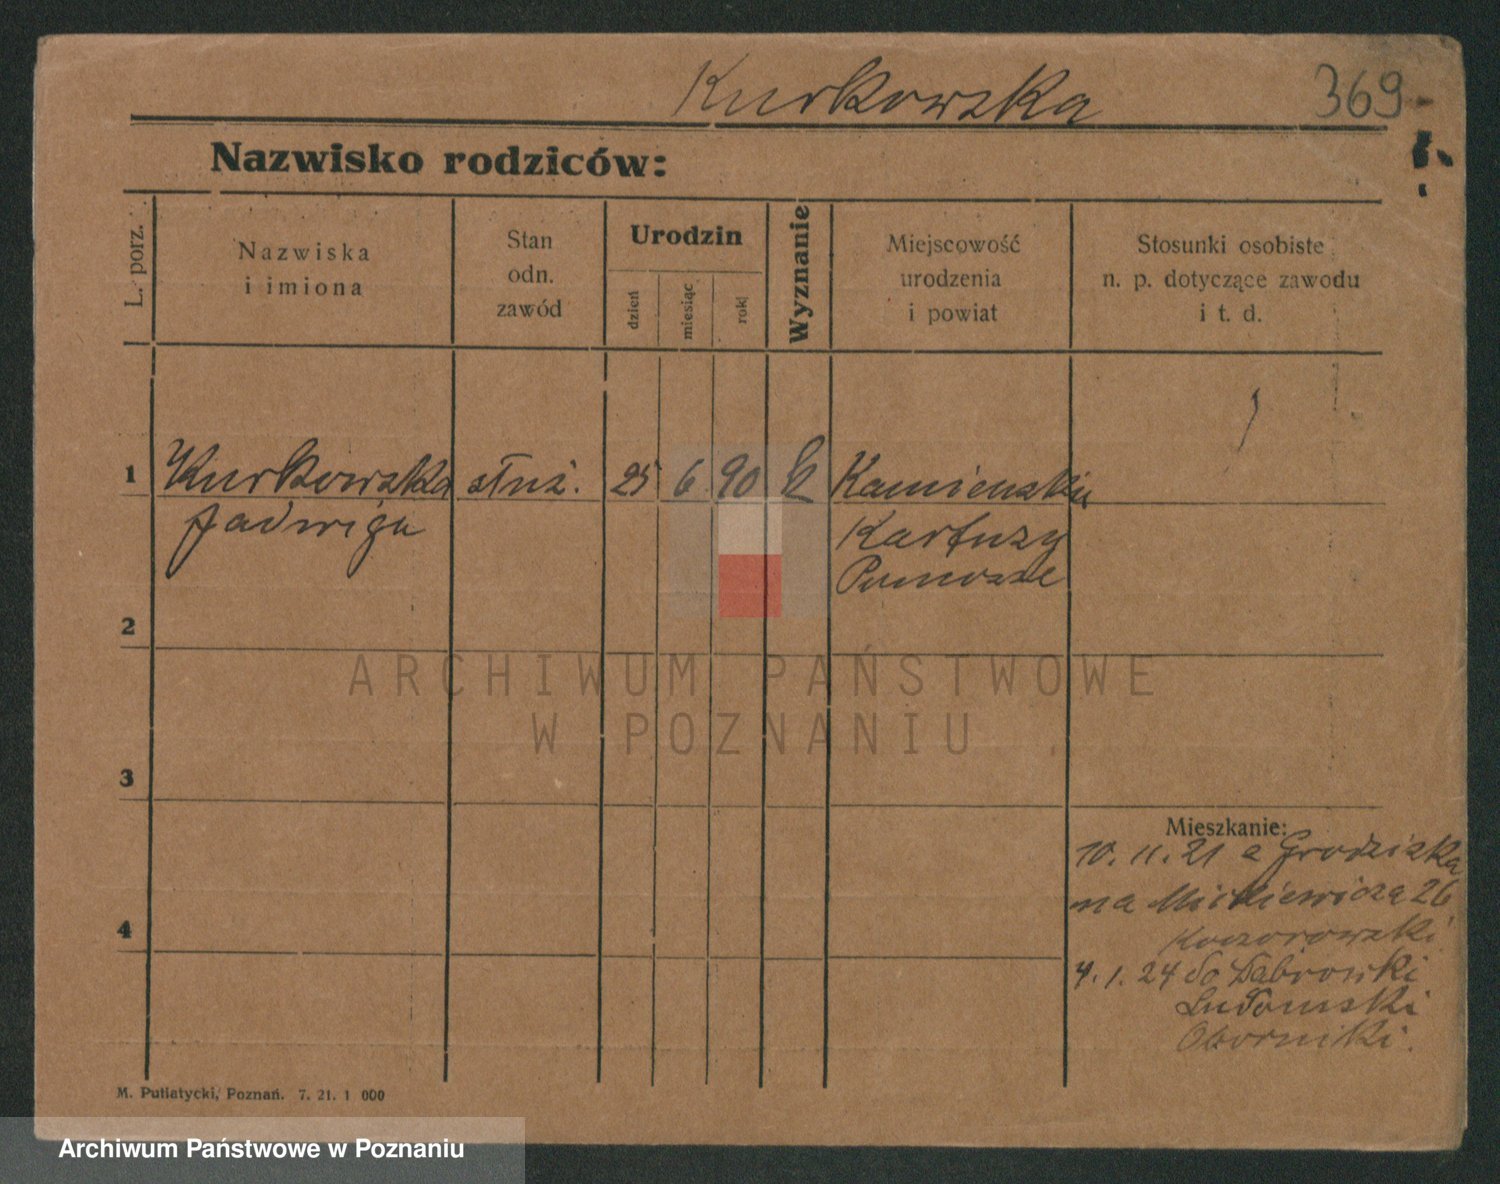 Kurkowska
369
Nazwisko rodziców:
L. porz.
Nazwiska
i imiona
Stan
odn.
zawód
Urodzin
dzień
miesiąc
rok
Wyznanie
Miejscowość
urodzenia
i powiat
Stosunki osobiste
n. p. dotyczące zawodu
i t. d.
1 Kurkowska służ. 25 6 90 k
Jadwiga
Kartuzy
Pomorze
2
3
4
Mieszkanie:
10. 11. 21 z Grodziska
na Mickiewicza 26
4. 1. 24 do Dąbrowki
Ludomski
Oborniki.
M. Putiatycki, Poznań. 7. 21. 1 000
ARCHIWUM PAŃSTWOWE
W POZNANIU
Archiwum Państwowe w Poznaniu